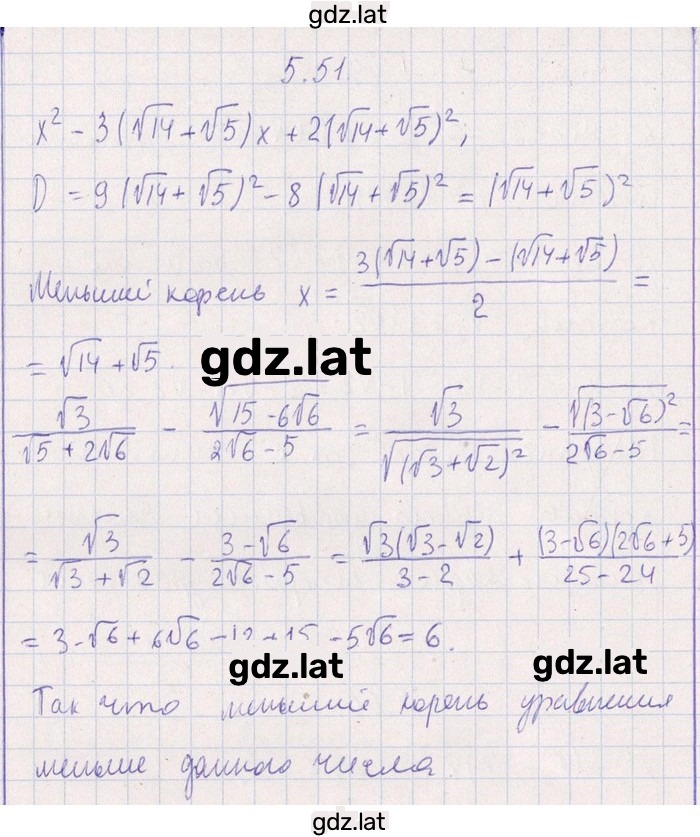 gdz.lat
5.51.
x² - 3(√14 + √5)x + 2(√14 + √5)²;
D = 9(√14 + √5)² - 8(√14 + √5)² = (√14 + √5)²
Меньший корень x = (3(√14 + √5) - (√14 + √5))/2 =
= √14 + √5.
gdz.lat
√3/(√5 + 2√6) - √(15 - 6√6)/(2√6 - 5) = √3/√((√3 + √2)²) - √((3 - √6)²)/(2√6 - 5) =
= √3/(√3 + √2) - (3 - √6)/(2√6 - 5) = √3(√3 - √2)/(3 - 2) + (3 - √6)(2√6 + 5)/(25 - 24)
= 3 - √6 + 6√6 - 12 + 15 - 5√6 = 6.
gdz.lat gdz.lat
Так что меньший корень уравнения
меньше данного числа.
gdz.lat